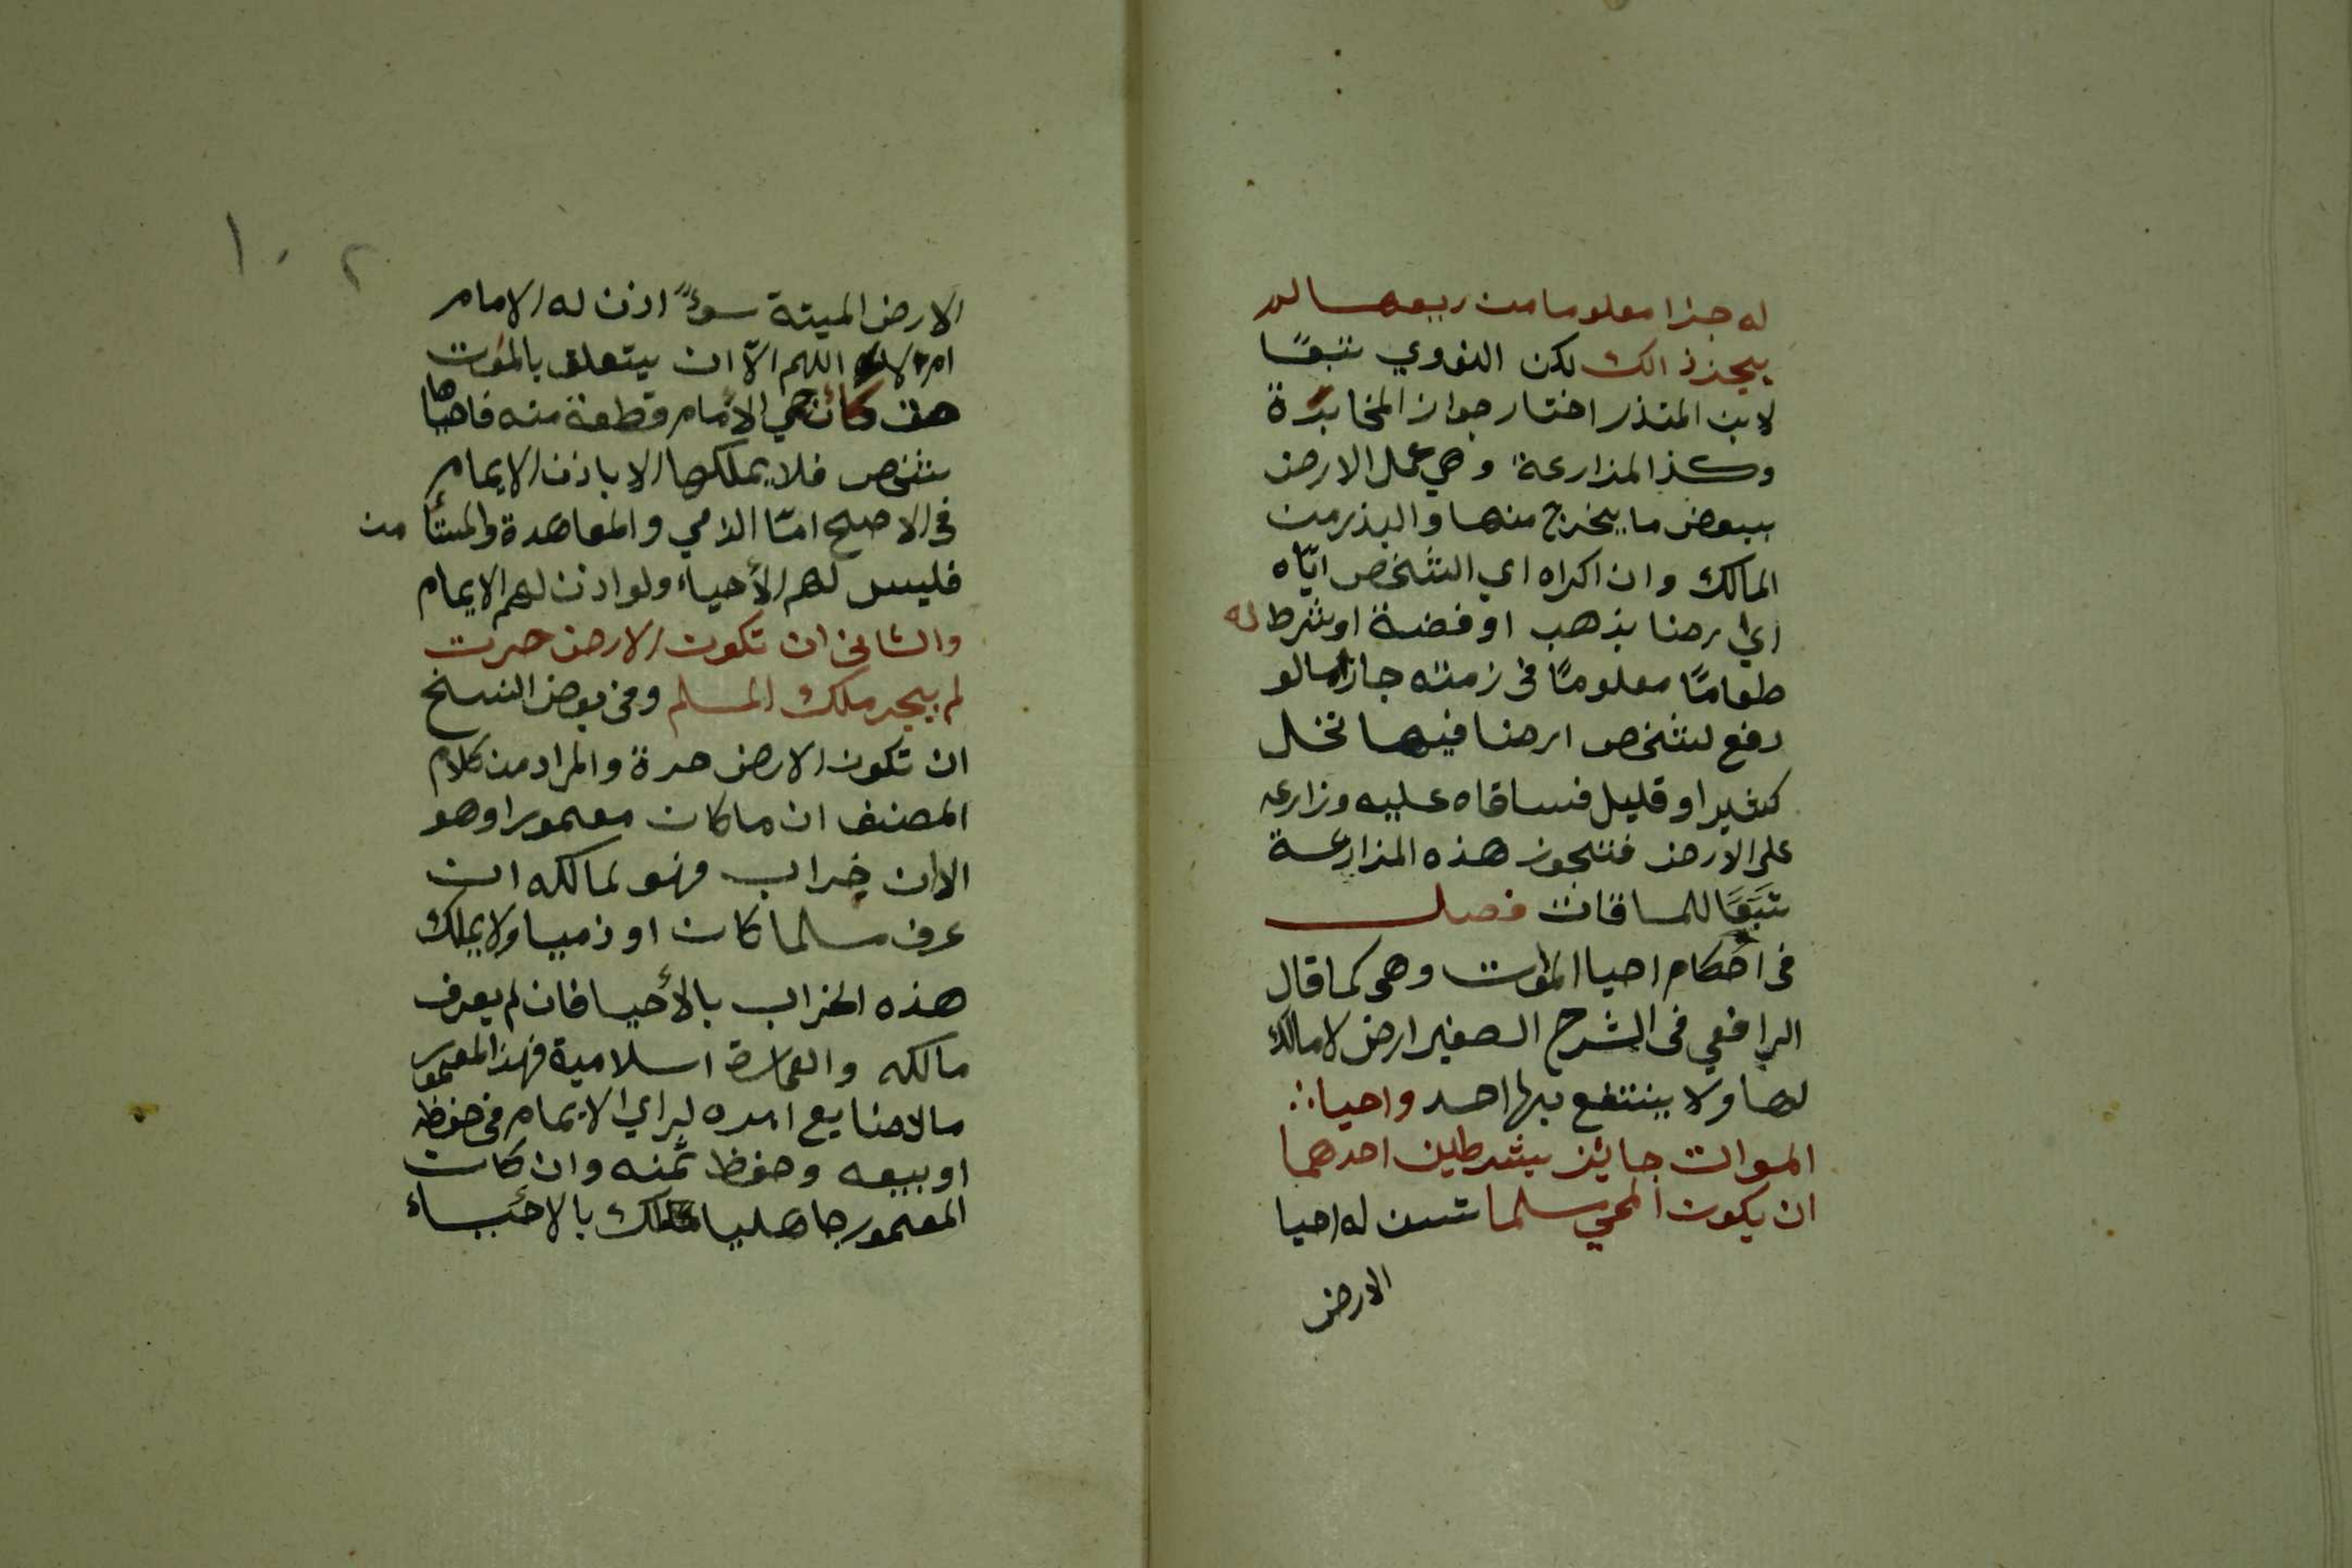 له جزا معلوما من ريعها لم
يجز ذالك لكن النووي تبعًا
لابن المنذر اختار جواز المخابرة
وكذا المزارعة وهي عمل الارض
ببعض ما يخرج منها والبذر من
المالك وان اكراه اي الشخص ايّاه
اي ارضا بذهب او فضة او شرط له
طعامًا معلومًا في زمته جاز امالو
دفع لشخص ارضا فيها نخل
كثير او قليل فساقاه عليه وزارعه
على الارض فتجوز هذه المزارعة
تَبَعًا للمساقات فصل
في احكام احيا الموات وهى كما قال
الرافعي في الشرح الصغير ارض لا مالك
لها ولا ينتفع بها احد واحيا
الموات جايز بشرطين احدهما
ان يكون المحي مسلما تسن له احيا
الارض
١٠٢
الارض الميتة سوءً اذن له الامام
ام لا اللهم الاّ ان يتعلق بالموت
حق كأن حمي الامام قطعة منه فاحياها
شخص فلا يملكها الا باذن الايمام
في الاصح امّا الذمي والمعاهدة والمستأ من
فليس لهم الأحياء ولو اذن لهم الايمام
والثانى ان تكون الارض حرت
لم يجر ملك المسلم وفي بعض النسخ
ان تكون الارض حرة والمراد من كلام
المصنف ان ما كان معمورا وهو
الاان خراب فهو لمالكه ان
عرف مسلما كان او ذميا ولا يملك
هذه الخراب بالأحيا فان لم يعرف
مالكه والعمارة اسلامية فهذا المعمور
مالا ضايع امره لراي الايمام في حفظه
او بيعه وحفظ ثمنه وان كان
المعمور جاهليا ملك بالاحياء